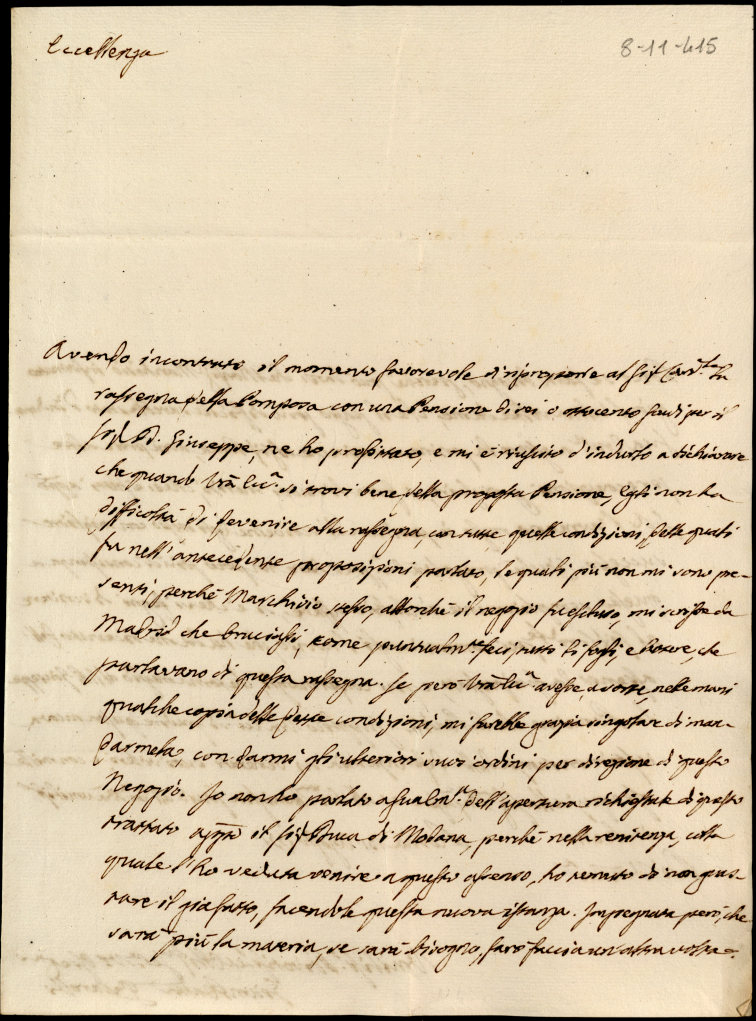 Eccellenza
8-11-415
Avendo incontrato il momento favorevole di riproporre al Sig.r Card.le la
rassegna della Pomposa con una Pensione di sei o ottocento scudi per il
Sig.r D. Giuseppe, ne ho profittato, e mi è riuscito d'indurlo a dichiarare
che quando Vra Ecc.a si trovi bene della proposta Pensione, Egli non ha
difficoltà di devenire alla rassegna, con tutte quelle condizioni, delle quali
fu nell'antecedente proposizioni parlato, le quali più non mi sono pre-
senti, perchè Marchisio stesso, allorchè il negozio fu escluso, mi scrisse da
Madrid che bruciassi, come puntualm.te feci, tutti li fogli, e lettere, che
parlavano di questa rassegna. Se però Vra Ecc.a avesse, a sorte, nelle mani
qualche copia delle dette condizioni, mi sarebbe grazia singolare di man-
darmela, con darmi gli ulteriori suoi ordini per direzione di questo
Negozio. Io non ho parlato a Sua Em.za dell'apertura di questo
trattato app.o il Sig.r Duca di Modana, perchè nella renitenza, colla
quale l'ho veduta venire a questo assenso, ho temuto di non guas-
tare il già fatto, facendole questa nuova istanza. Impegnata però, che
sarà più la materia, se sarà bisogno, farò faccia un'altra volta